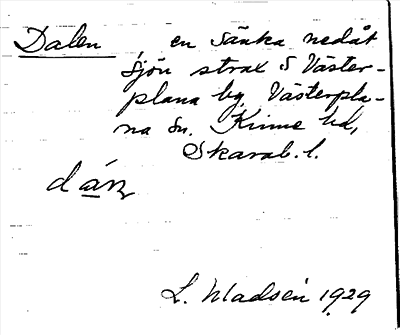 Dalen, en sänka nedåt
sjön strax S Väster-
plana by, Västerpla-
na sn. Kinne hd,
Skarab. l.
L. Madsén 1929